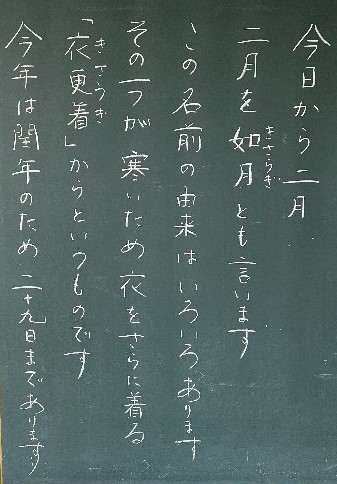 今日から二月
二月を如月とも言います
きさらぎ
この名前の由来はいろいろあります
その一つが寒いため衣をさらに着る
「衣更着」からというものです
きさらぎ
今年は閏年のため二十九日まであります